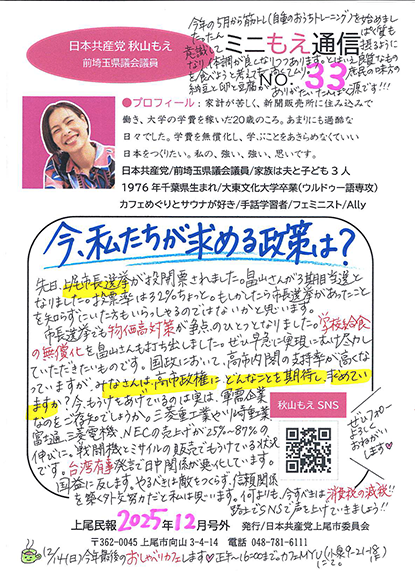 今年の5月から筋トレ(自宅のおうちトレーニング)を始めまし
日本共産党 秋山もえ
前埼玉県議会議員
ミニもえ通信
No.33
納豆と卵と豆腐が
ありがたいたんぱく源です!!!
●プロフィール:家計が苦しく、新聞販売所に住み込みで
働き、大学の学費を稼いだ20歳のころ。あまりにも過酷な
日々でした。学費を無償化し、学ぶことをあきらめなくていい
日本をつくりたい。私の、強い、強い、思いです。
日本共産党/前埼玉県議会議員/家族は夫と子ども3人
1976年千葉県生まれ/大東文化大学卒業(ウルドゥー語専攻)
カフェめぐりとサウナが好き/手話学習者/フェミニスト/Ally
今、私たちが求める政策は?
先日、上尾市長選挙が投開票されました。畠山さんが3期目当選と
なりました。投票率は32%ちょっと。もしかしたら市長選挙があったこと
を知らずにいた方もいらっしゃるのではないかと思います。
市長選挙でも物価高対策が争点のひとつとなりました。学校給食
の無償化を畠山さんも打ち出しました。ぜひ早急に実現にむけ尽力し
ていただきたいものです。国政において、高市内閣の支持率が高くな
っていますが、みなさんは、高市政権に、どんなことを期待し、求めてい
ますか?今、もうけをあげているのは実は、軍需企業
なのをご存知でしょうか。三菱重工業や川崎重工業
富士通、三菱電機、NECの売上げが25%~87%の
伸びに。戦闘機とミサイルの販売でもうけている状況
です。台湾有事発言で日中関係が悪化しています。
国益に反します。やるべきは敵をつくらず、信頼関係
を築く外交努力だと私は思います。何よりも、今すべきは消費税の減税!!
路上でSNSで声を上げていきましょう!!
秋山もえSNS
ぜひフォロー
どうぞ
おねがい
します
上尾民報 2025年12月号外 発行/日本共産党上尾市委員会
〒362-0045 上尾市向山3-4-14 電話 048-781-6111
12/14(日)今年最後のおしゃべりカフェします 正午~16:00まで。カフェMYU(小泉9-21-18)にて。